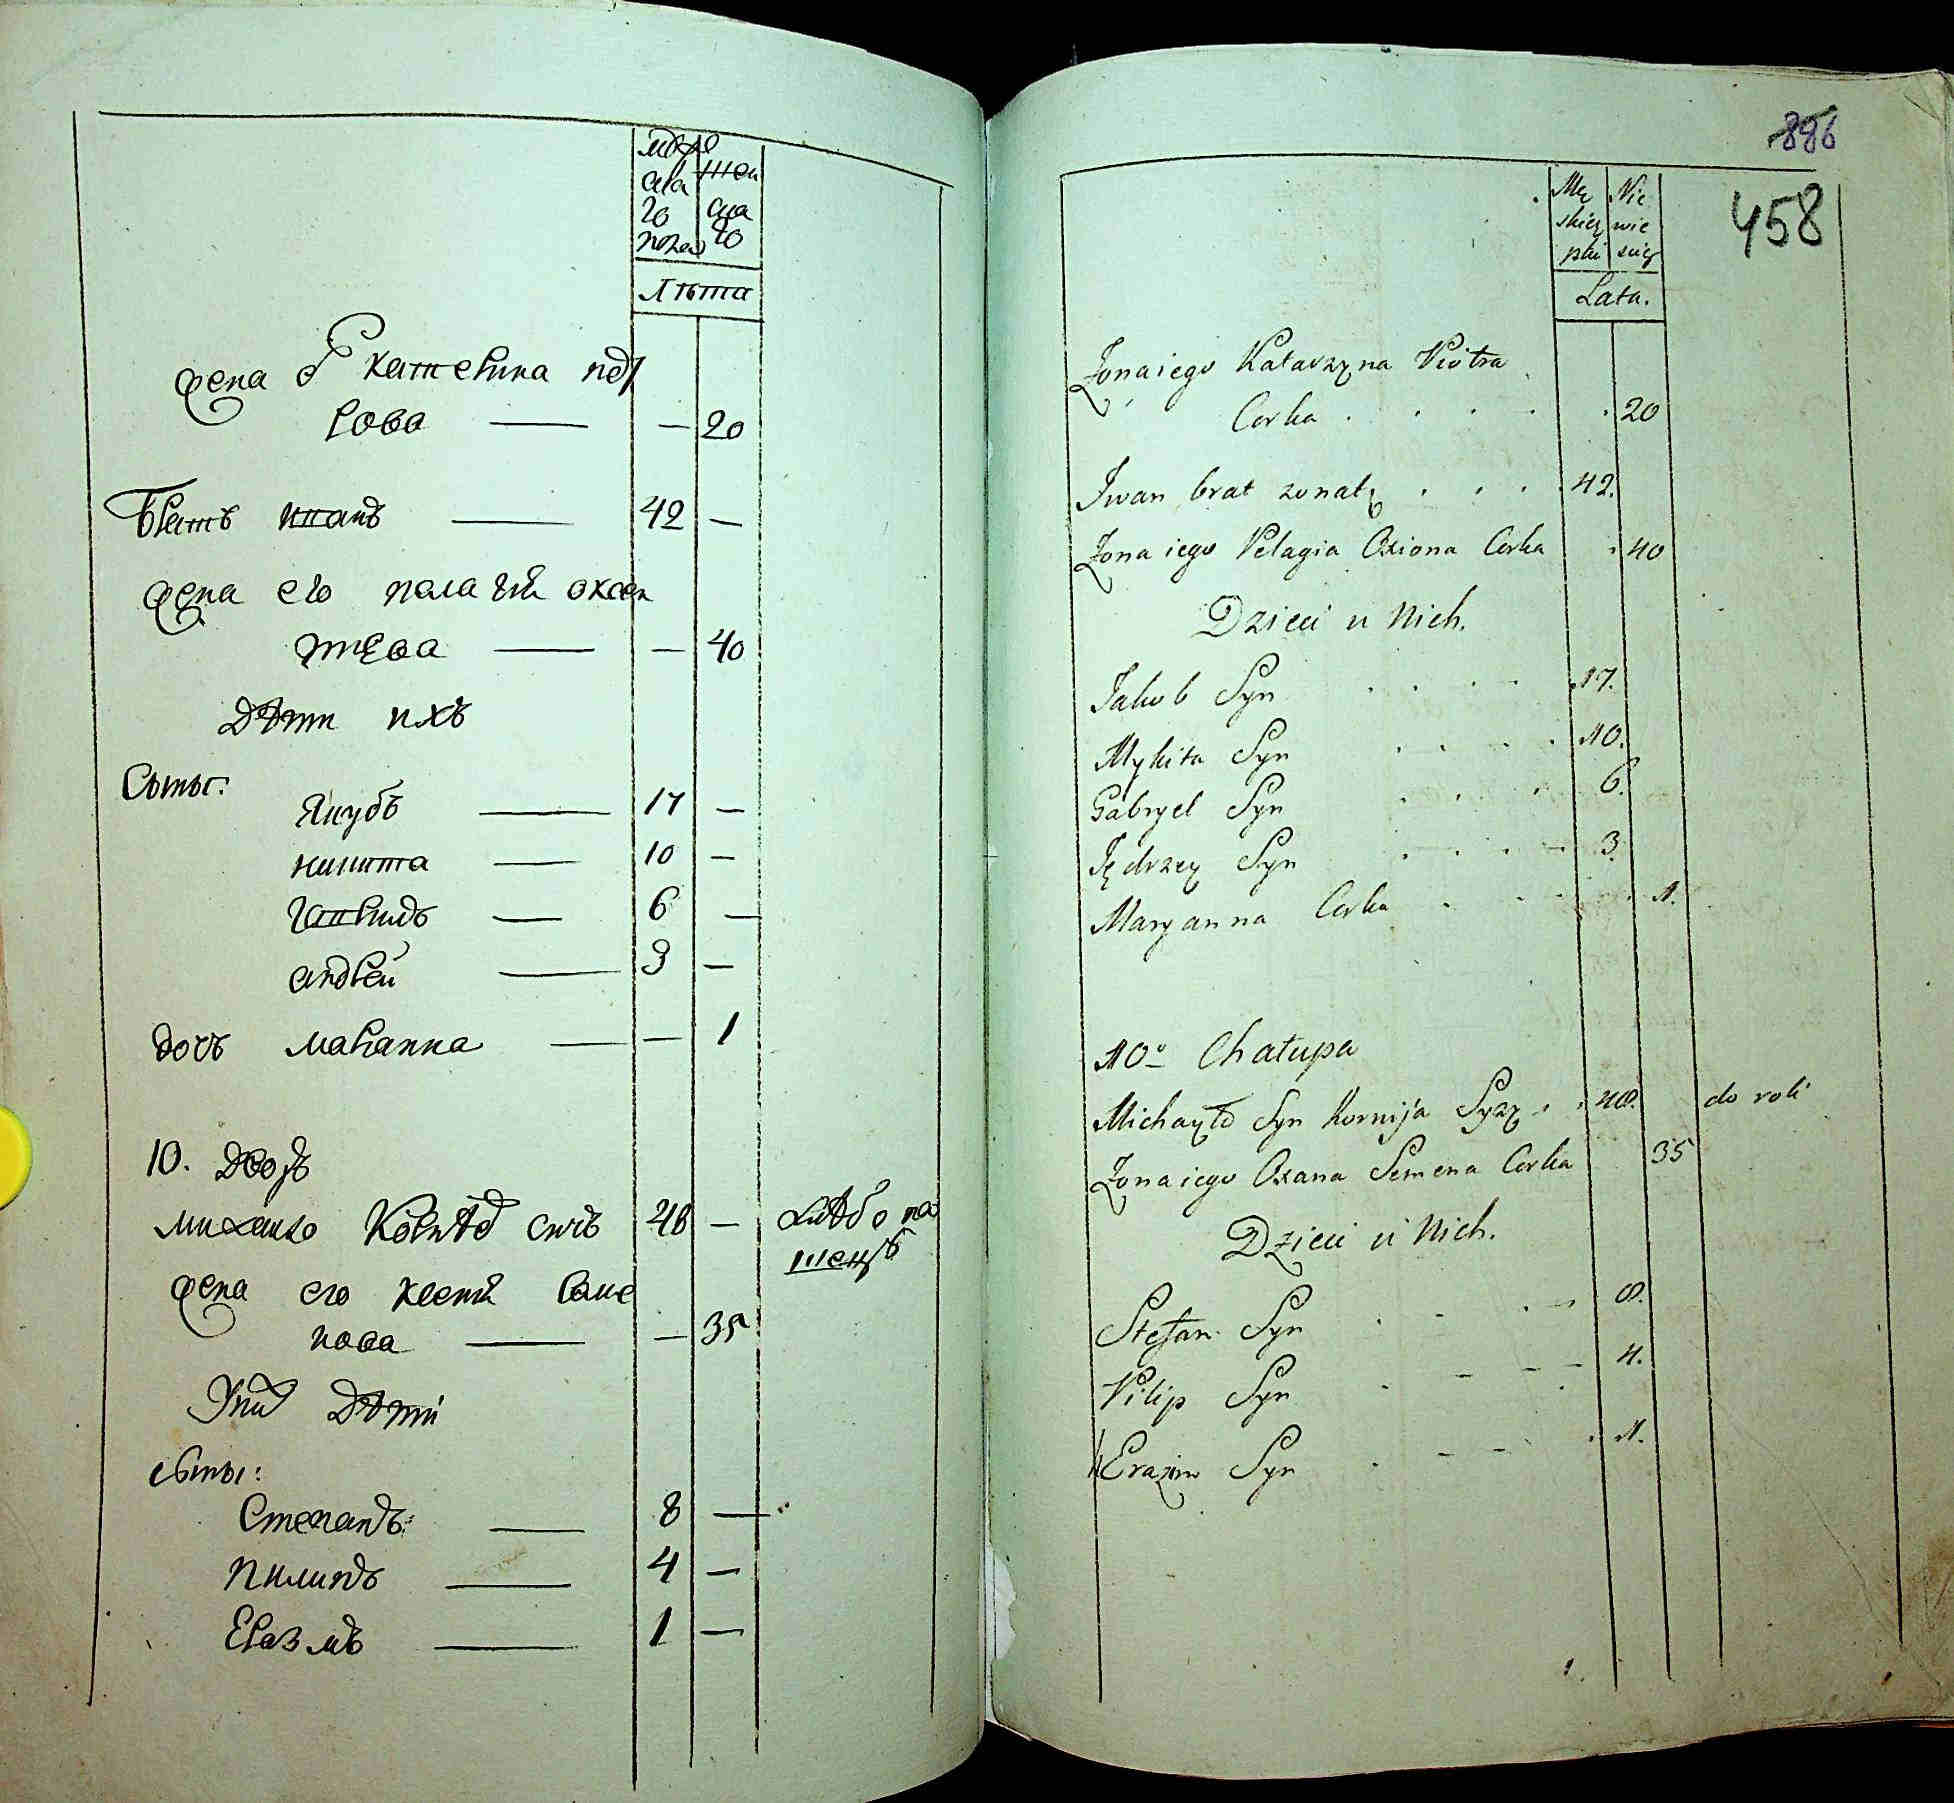 муже
ска
го
пола
жен
ска
го
Лѣта
жена Екатерина пет
рова — — 20
братъ иванъ — 42 —
жена его палагия оксен
тѣева — — 40
Дѣти ихъ
Сыны:
Якубъ — 17 —
никита — 10 —
гаврилъ — 6 —
андрей — 3 —
дочь марянна — — 1
10. дворъ
михайло Корнѣевъ сынъ 48 — хлѣбопа
шецъ
жена его ксения семе
нова — — 35
У них дѣти
сыны:
Степанъ — 8 —
Пилипъ — 4 —
Еразмъ — 1 —
886
458
Mę
skiey
płci
Nie
wie
sciey
Lata.
Zona iego Katarzyna Piotra
Corka . . . . . 20
Iwan brat zonaty . . . . 42.
Zona iego Pelagia Oxiona Corka . 40
Dzieci u Nich.
Jakob Syn . . . . 17.
Mykita Syn . . . . 10.
Gabryel Syn . . . 6.
Jędrzey Syn . . . . 3.
Maryanna Corka . . . . 1.
10o Chałupa
Michayło Syn Kornija . . 48. do roli
Zona iego Oxana Semena Corka 35
Dzieci u Nich.
Stefan Syn . . . . 8.
Pilip Syn . . . . 4.
Erazm Syn . . . . 1.